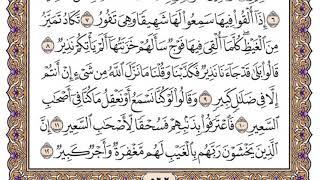 ٦ إِذَآ أُلْقُواْ فِيهَا سَمِعُواْ لَهَا شَهِيقٗا وَهِيَ تَفُورُ ٧ تَكَادُ تَمَيَّزُ
مِنَ ٱلۡغَيۡظِۖ كُلَّمَآ أُلۡقِيَ فِيهَا فَوۡجٞ سَأَلَهُمۡ خَزَنَتُهَآ أَلَمۡ يَأۡتِكُمۡ نَذِيرٞ ٨
قَالُواْ بَلَىٰ قَدۡ جَآءَنَا نَذِيرٞ فَكَذَّبۡنَا وَقُلۡنَا مَا نَزَّلَ ٱللَّهُ مِن شَيۡءٍ إِنۡ أَنتُمۡ
إِلَّا فِي ضَلَٰلٖ كَبِيرٖ ٩ وَقَالُواْ لَوۡ كُنَّا نَسۡمَعُ أَوۡ نَعۡقِلُ مَا كُنَّا فِيٓ أَصۡحَٰبِ
ٱلسَّعِيرِ ١٠ فَٱعۡتَرَفُواْ بِذَنۢبِهِمۡ فَسُحۡقٗا لِّأَصۡحَٰبِ ٱلسَّعِيرِ ١١ إِنَّ
ٱلَّذِينَ يَخۡشَوۡنَ رَبَّهُم بِٱلۡغَيۡبِ لَهُم مَّغۡفِرَةٞ وَأَجۡرٞ كَبِيرٞ ١٢